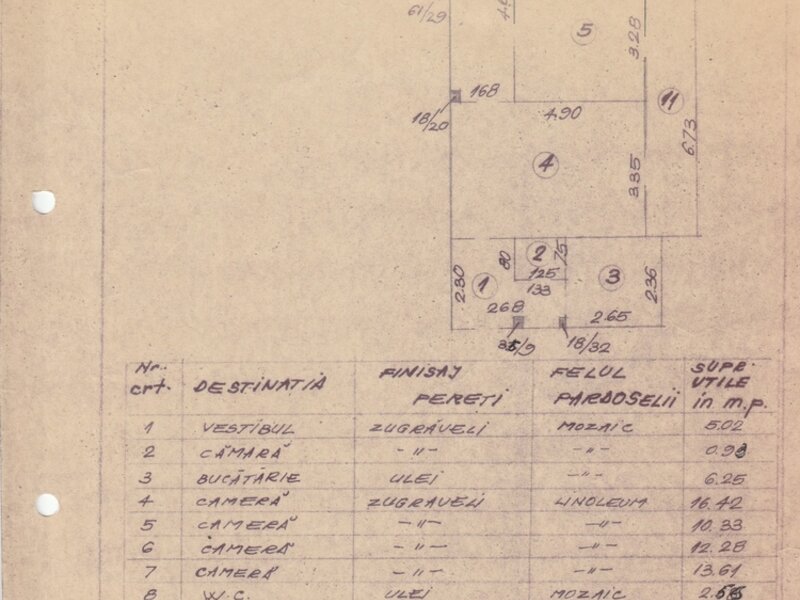 61/29
5
3.28
168
18/20
4.90
11
6.73
4
3.35
80
2
75
125
133
1
2.80
3
2.36
268
2.65
18/32
Nr. crt. DESTINAȚIA FINISAJ PERETI FELUL PARDOSELII SUPR. UTILE in m.p.
1 VESTIBUL ZUGRĂVELI MOZAIC 5.02
2 CĂMARĂ -"- -"- 0.93
3 BUCĂTĂRIE ULEI -"- 6.25
4 CAMERĂ ZUGRAVELI LINOLEUM 16.42
5 CAMERĂ -"- -"- 10.33
6 CAMERĂ -"- -"- 12.28
7 CAMERĂ -"- -"- 13.61
8 W.C. ULEI MOZAIC